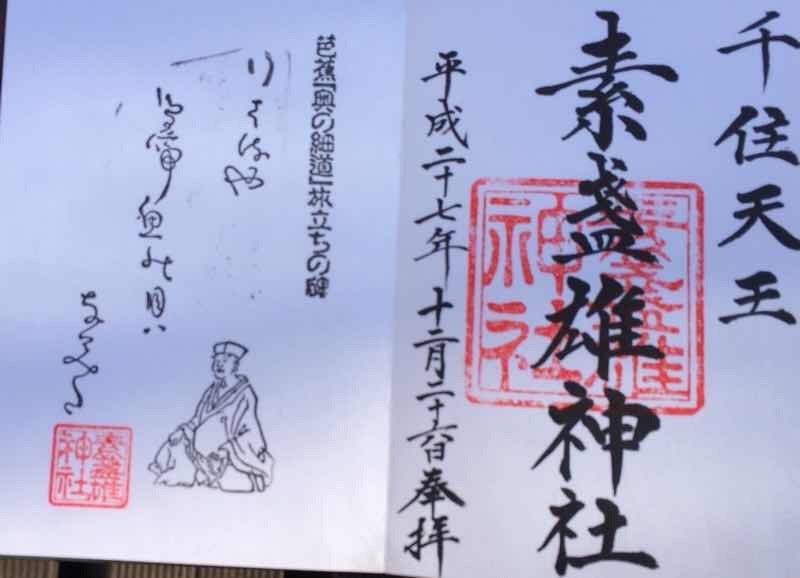 千住天王
素盞雄神社
素盞雄
神社
平成二十七年 十二月二十六日 奉拝
芭蕉「奥の細道」旅立ちの碑
行はるや
鳥啼魚の目ハ
なみた
素盞雄
神社